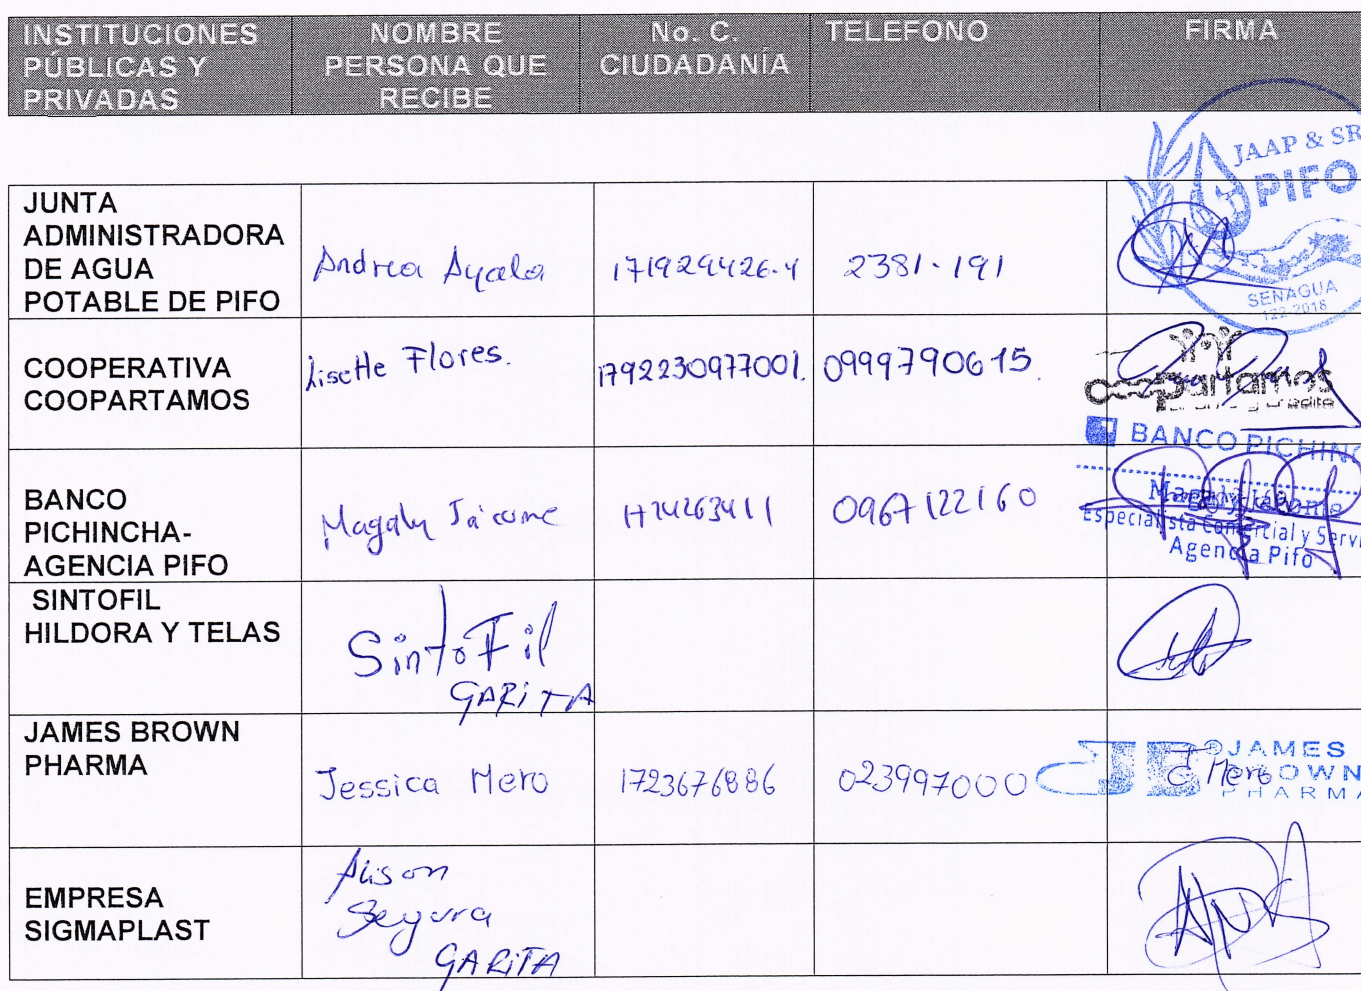 INSTITUCIONES PÚBLICAS Y PRIVADAS
NOMBRE PERSONA QUE RECIBE
No. C. CIUDADANÍA
TELEFONO
FIRMA
JAAP & SR
PIFO
SENAGUA
122-2018
JUNTA
ADMINISTRADORA
DE AGUA
POTABLE DE PIFO
Andrea Ayala
171929426-4
2381-191
COOPERATIVA
COOPARTAMOS
Lisette Flores.
1792230977001.
0999790615.
coopartamos
BANCO PICHINC
BANCO
PICHINCHA-
AGENCIA PIFO
Magaly Jácome
1714263411
0967122160
Magaly Jácome
Especialista Comercial y Servi
Agencia Pifo
SINTOFIL
HILDORA Y TELAS
SintoFil
GARITA
JAMES BROWN
PHARMA
Jessica Mero
1723676886
023997000
JB ®JAMES
BROWN
PHARMA
J. Mero
EMPRESA
SIGMAPLAST
Alison
Segura
GARITA